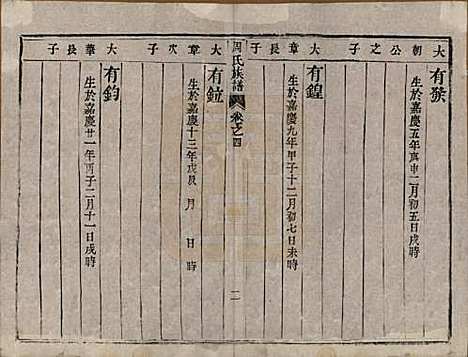 大朝公之子
有猴
生於嘉慶五年庚申二月初五日戌時
大章長子
有鍠
生於嘉慶九年甲子十二月初七日未時
周氏族譜
卷之四
二
大章次子
有鉝
生於嘉慶十三年戊辰 月 日 時
大華長子
有鈞
生於嘉慶廿一年丙子二月十一日戌時